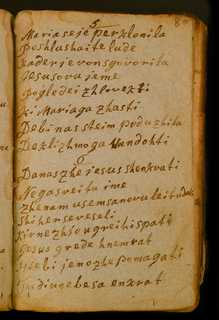 5 80
Maria se je perklonila
Poshlushaite lude
kader je von sgovorila
Jesusovu jeme
Pogledei zhlovezki
ki Mariaga zhasti
De bi nas steim poduzhila
De klizhmo ga kandohti
6
Danas zhe jesus shenkvati
Negasveitu ime
zhenam usem sanovu leitu
Shiher se veseli
kir nezhjo ugreihi spati
Jesus grede knem rat
Usebi jemozhe pomagati
Tudi unebesa enkrat